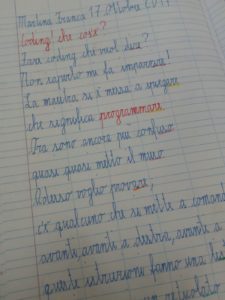 Martina Franca 17 Ottobre 2017
Coding! che cos'è?
Fare coding che vuol dire?
Non saperlo mi fa impazzire!
La maestra si è messa a spiegare
che significa programmare.
Ora sono ancora più confuso
quasi quasi metto il muso.
Adesso voglio provare,
c'è qualcuno che si mette a comand
avanti, avanti a destra, avanti a
queste istruzioni fanno una list